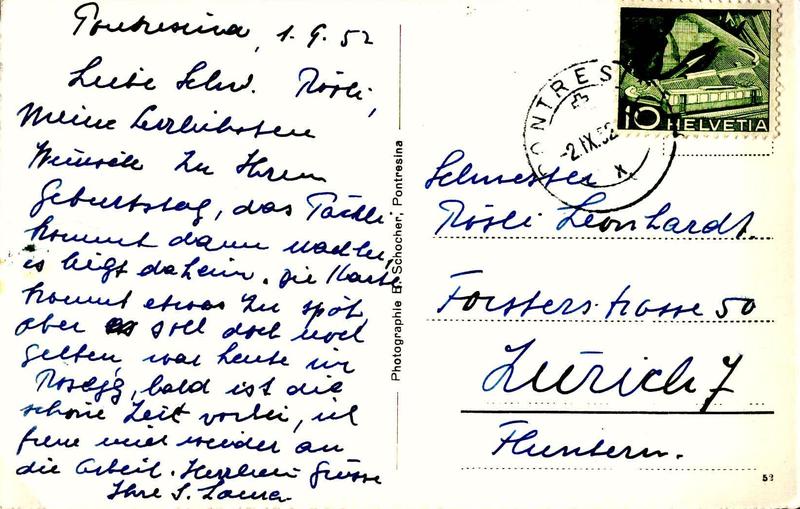 Pontresina, 1.9.52
Liebe Schw. Rösli,
Meine herzlichsten
Wünsche zu Ihrem
Geburtstag, das Päckli
kommt dann nachher,
es liegt daheim. Die Karte
kommt etwas zu spät
aber es soll doch noch
gelten, war heute im
Rosegg, bald ist die
schöne Zeit vorbei, ich
freue mich wieder an
die Arbeit. Herzliche Grüsse
Ihre S. Laura
Photographie B. Schocher, Pontresina
PONTRES
-2.IX.52
X
10 HELVETIA
Schwester
Rösli Leonhardt.
Forsterstrasse 50
Zürich 7
Fluntern.
53